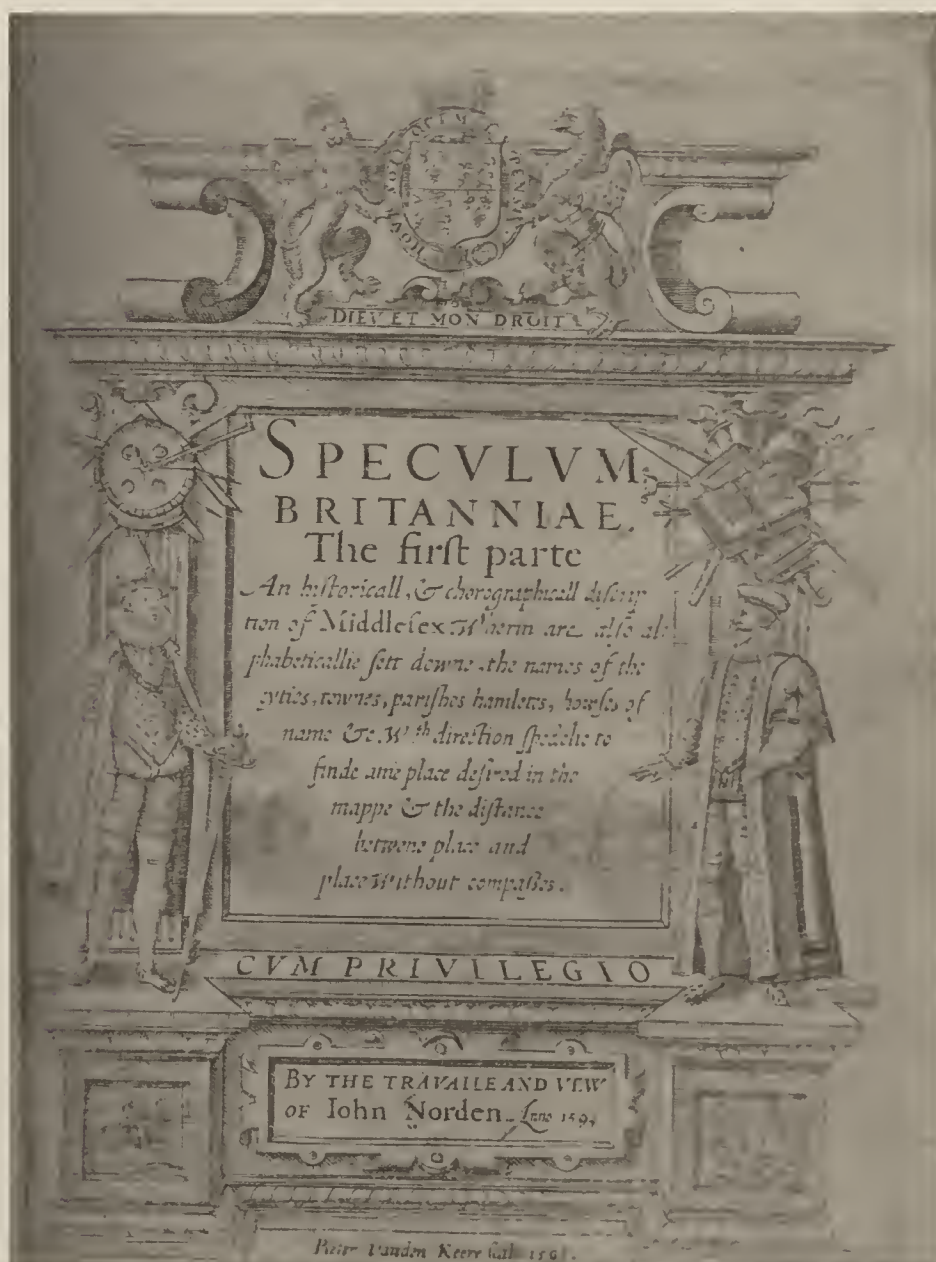 DIEV ET MON DROIT
SPECVLVM
BRITANNIAE.
The firſt parte
An hiſtoricall, & chorographicall diſcrip
tion of Middleſex. Wherin are alſo al
phabeticallie ſett downe, the names of the
cyties, townes, pariſhes hamletts, howſes of
name &c. Wth direction ſpedelie to
finde anie place deſired in the
mappe & the diſtance
betwene place and
place without compaſſes.
CVM PRIVILEGIO
BY THE TRAVAILE AND VEW
OF Iohn Norden. Anno
Pieter Vanden Keere